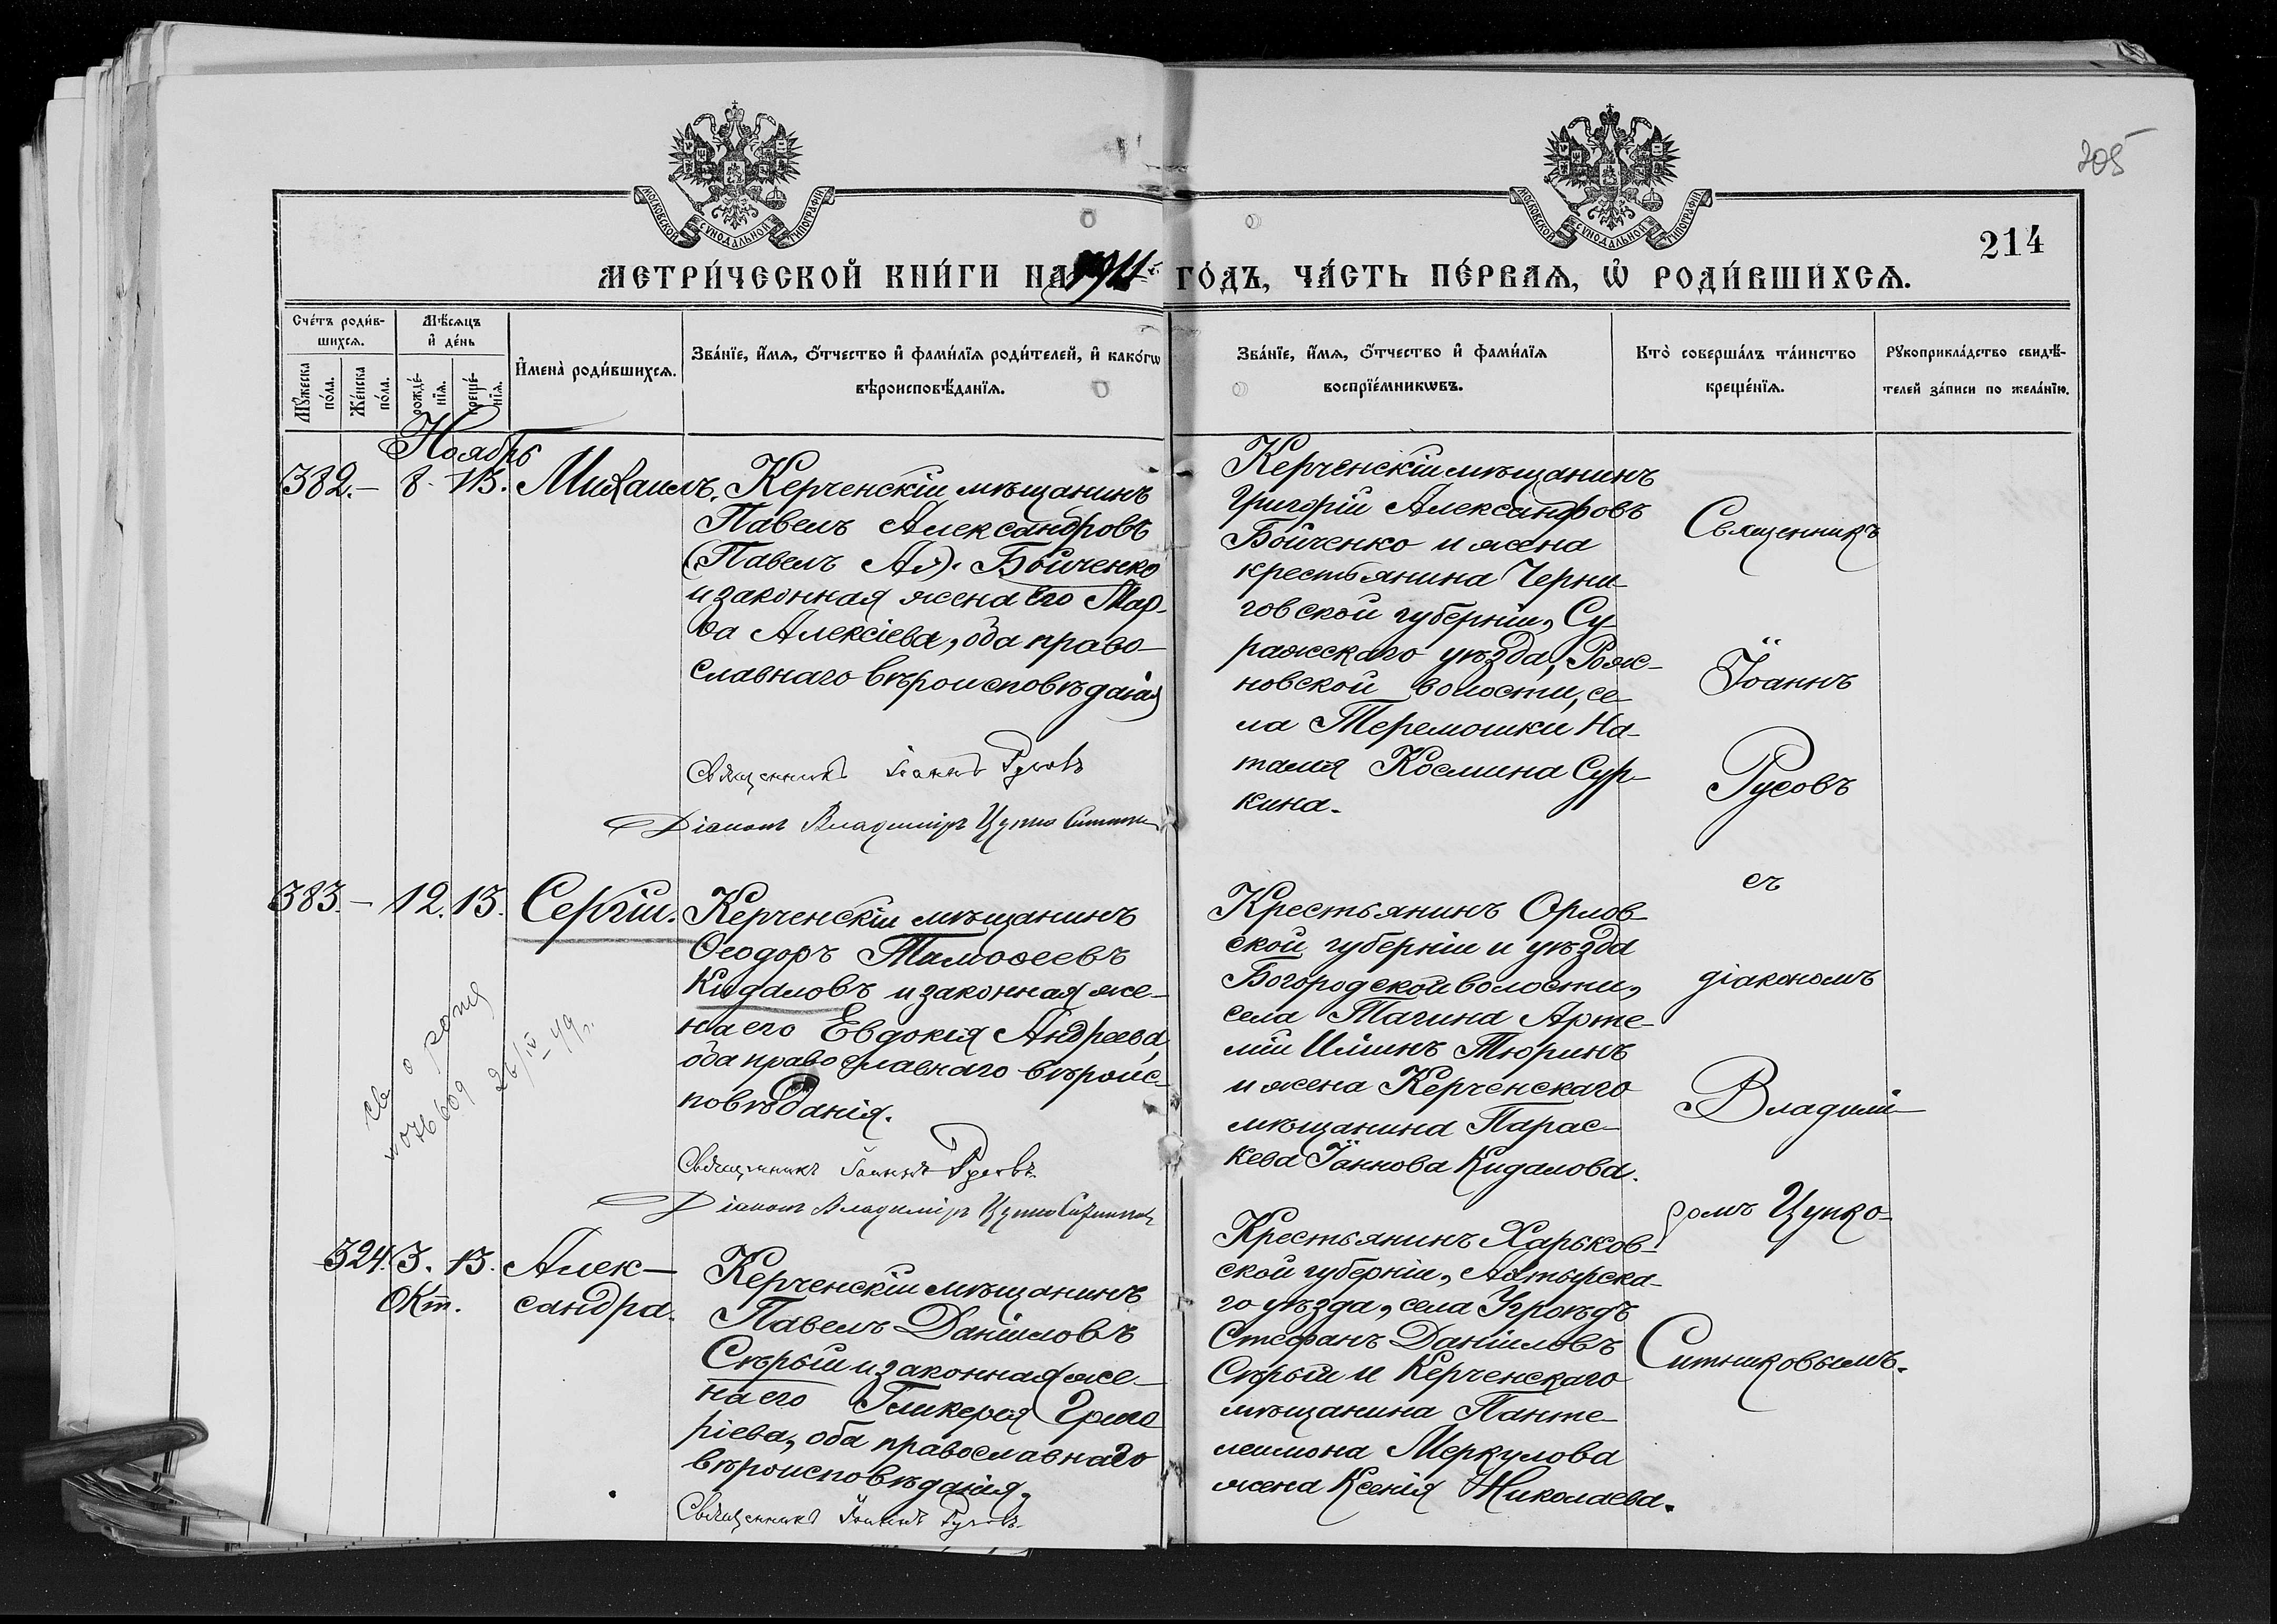 205
214
МОСКОВСКОЙ СѴНОДАЛЬНОЙ ТИПОГРАФІИ
МОСКОВСКОЙ СѴНОДАЛЬНОЙ ТИПОГРАФІИ
МЕТРИ́ЧЕСКОЙ КНИ́ГИ НА 1911 ГО́ДЪ, ЧА́СТЬ ПЕ́РВАѦ, Ѡ҆ РОДИ́ВШИХСѦ.
Сче́тъ роди́в-
шихсѧ.
Мꙋ́жеска по́ла.
Же́нска по́ла.
Мѣ́сѧцъ
и҆ де́нь
рожде́-
нїѧ.
креще́-
нїѧ.
И҆мена̀ роди́вшихсѧ.
Зва́нїе, и҆́мѧ, ѻ҆́тчество и҆ фами́лїѧ роди́телей, и҆ како́гѡ
вѣроисповѣ́данїѧ.
Зва́нїе, и҆́мѧ, ѻ҆́тчество и҆ фами́лїѧ
воспрїе́мникѡвъ.
Кто̀ соверша́лъ та́инство
креще́нїѧ.
Рꙋкоприкла́дство свидѣ́-
телей за́писи по жела́нїю.
Ноябрь
382. – 8. 13. Михаилъ.
Керченскій мѣщанинъ
Павелъ Александровъ
(Павелъ Ал). Бойченко
и законная жена его Мар-
ѳа Алексіева, оба право-
славнаго вѣроисповѣданія
Священникъ Іоаннъ Русовъ
Діаконъ Владиміръ Цупко
Керченскій мѣщанинъ
Григорій Александровъ
Бойченко и жена
крестьянина Черни-
говской губерніи, Су-
ражскаго уѣзда, Рож-
новской волости, се-
ла Теремошки На-
талія Космина Сур-
кина.
Священникъ
Іоаннъ
Русовъ
съ
діакономъ
Владимі-
ромъ Цупко-
Ситниковымъ.
383. – 12. 13. Сергій.
Керченскій мѣщанинъ
Ѳеодоръ Тимоѳеевъ
Кидаловъ и законная же-
на его Евдокія Андреева,
оба православнаго вѣроис-
повѣданія.
Священникъ Іоаннъ Русовъ
Діаконъ Владиміръ Цупко Ситниковъ
Крестьянинъ Орлов-
ской губерніи и уѣзда
Богородской волости,
села Тагина Арте-
мій Илiинъ Тюринъ
и жена Керченскаго
мѣщанина Парас-
кева Іаннова Кидалова.
св о рожд
26/IV–49 г.
324. 3. 13.
Окт.
Алек-
сандра.
Керченскій мѣщанинъ
Павелъ Даніиловъ
Сѣрый и законная же-
на его Гликерія Григо
ріева, оба православнаго
вѣроисповѣданія.
Священникъ Іоаннъ Русовъ
Крестьянинъ Харьков-
ской губерніи, Ахтырска-
го уѣзда, села Угроѣдъ
Стефанъ Даніиловъ
Сѣрый и Керченскаго
мѣщанина Панте-
леимона Меркулова
жена Ксенія Николаева.